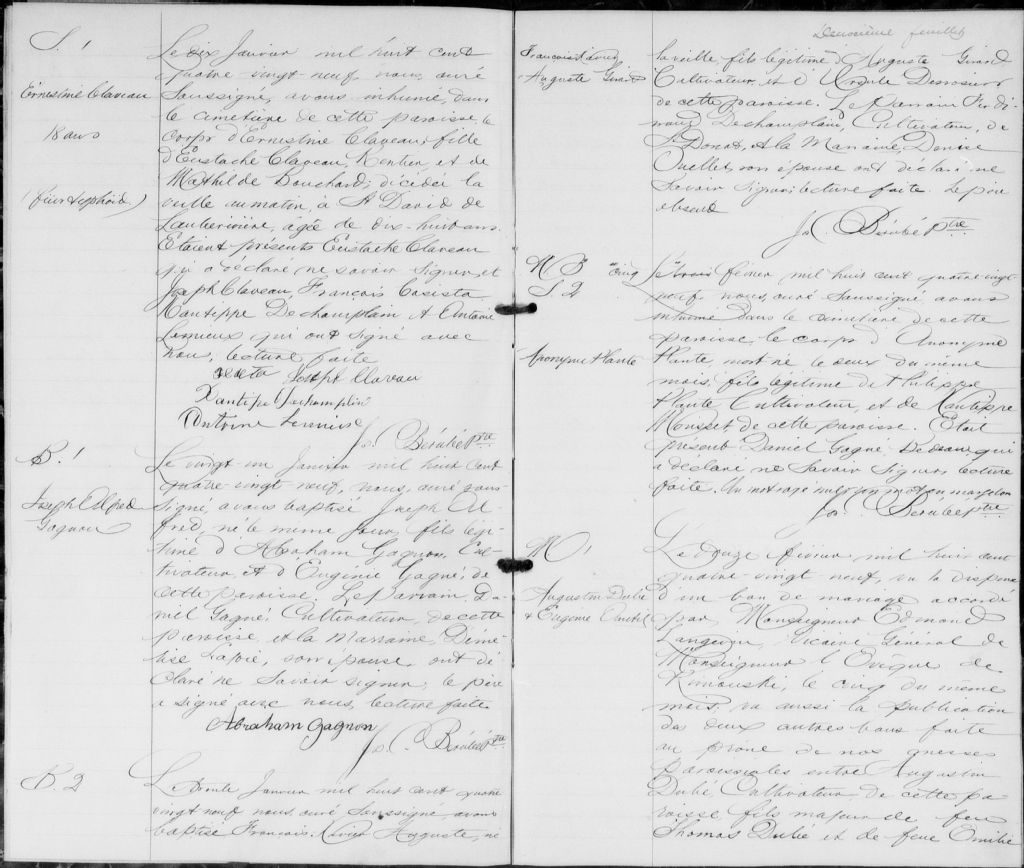 S. 1
Ernestine Claveau
18 ans
(fièvre typhoïde)
Le dix Janvier mil huit cent
quatre vingt-neuf, nous, curé
Soussigné, avons inhumé, dans
le cimetière de cette paroisse, le
corps d'Ernestine Claveau, fille
d'Eustache Claveau, Rentier, et de
Mathilde Bouchard, décédée la
veille au matin, à St David de
agée de dix-huit ans.
Etaient présents Eustache Claveau
qui a déclaré ne savoir signer, et
Joseph Claveau, François Casista
Xantippe Dechamplain et Antoine
Lemieux qui ont signé avec
nous, lecture faite
Joseph Claveau
Xantipe Dechamplin
Antoine
Jos. C. Bérubé ptre
B. 1
Joseph Alfred
Gagnon
Le vingt un Janvier mil huit cent
quatre-vingt neuf, nous, curé sous-
signé, avons baptisé Joseph Al-
fred, né le même jour, fils légi-
time d'Abraham Gagnon, Cul-
tivateur, et d'Eugénie Gagné, de
cette paroisse. Le parrain, Da-
niel Gagné, Cultivateur, de cette
paroisse, et la Marraine, Démé-
rise Lavoie, son épouse, ont dé-
claré ne savoir signer, le père
a signé avec nous, lecture faite
Abraham Gagnon
Jos. C. Bérubé ptre
B. 2
Le trente Janvier mil huit cent quatre
vingt neuf nous, curé Soussigné, avons
baptisé François-Xavier Auguste, né
Deuxième feuillet
François Xavier
Auguste Girard
la veille, fils légitime d'Auguste Girard
Cultivateur et d'Ursule Desrosiers
de cette paroisse. Le Parrain Ferdi-
nand Deschamplain, Cultivateur, de
St Donat, et la Marraine, Denise
Ouellet, son épouse ont déclaré ne
savoir signer, lecture faite. Le père
absent
Jos. C. Bérubé ptre
N. B. "Cinq
S. 2
Anonyme Plante
Le trois février mil huit cent quatre vingt
neuf, nous, curé Soussigné, avons
inhumé dans le cimetière de cette
paroisse le corps d'Anonyme
Plante, mort né le deux du même
mois, fils légitime de Philippe
Plante Cultivateur, et de Xantippe
Mousset de cette paroisse. Etait
présent Daniel Gagné Bedeau qui
a déclaré ne savoir signer, lecture
faite. Un mot rayé nul, un mot en marge bon
Jos. Bérubé ptre
M. 1
Augustin Dubé
& Eugénie
Le douze février mil huit cent
quatre-vingt neuf, vu la dispense
d'un ban de mariage accordé
par Monseigneur Edmond
Langevin, Vicaire Général de
Monseigneur l'Evêque de
Rimouski, le cinq du même
mois, vu aussi la publication
des deux autres bans faite
au prône de nos messes
paroissiales entre Augustin
Dubé Cultivateur de cette pa-
roisse fils majeur de feu
Thomas Dubé et de feue Omilie